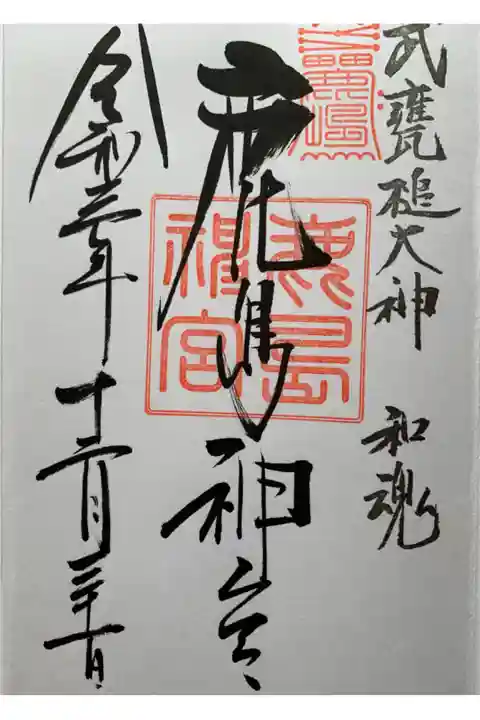 武甕槌大神 和魂
鹿島神宮
令和三年十二月三十日
鹿島
神宮